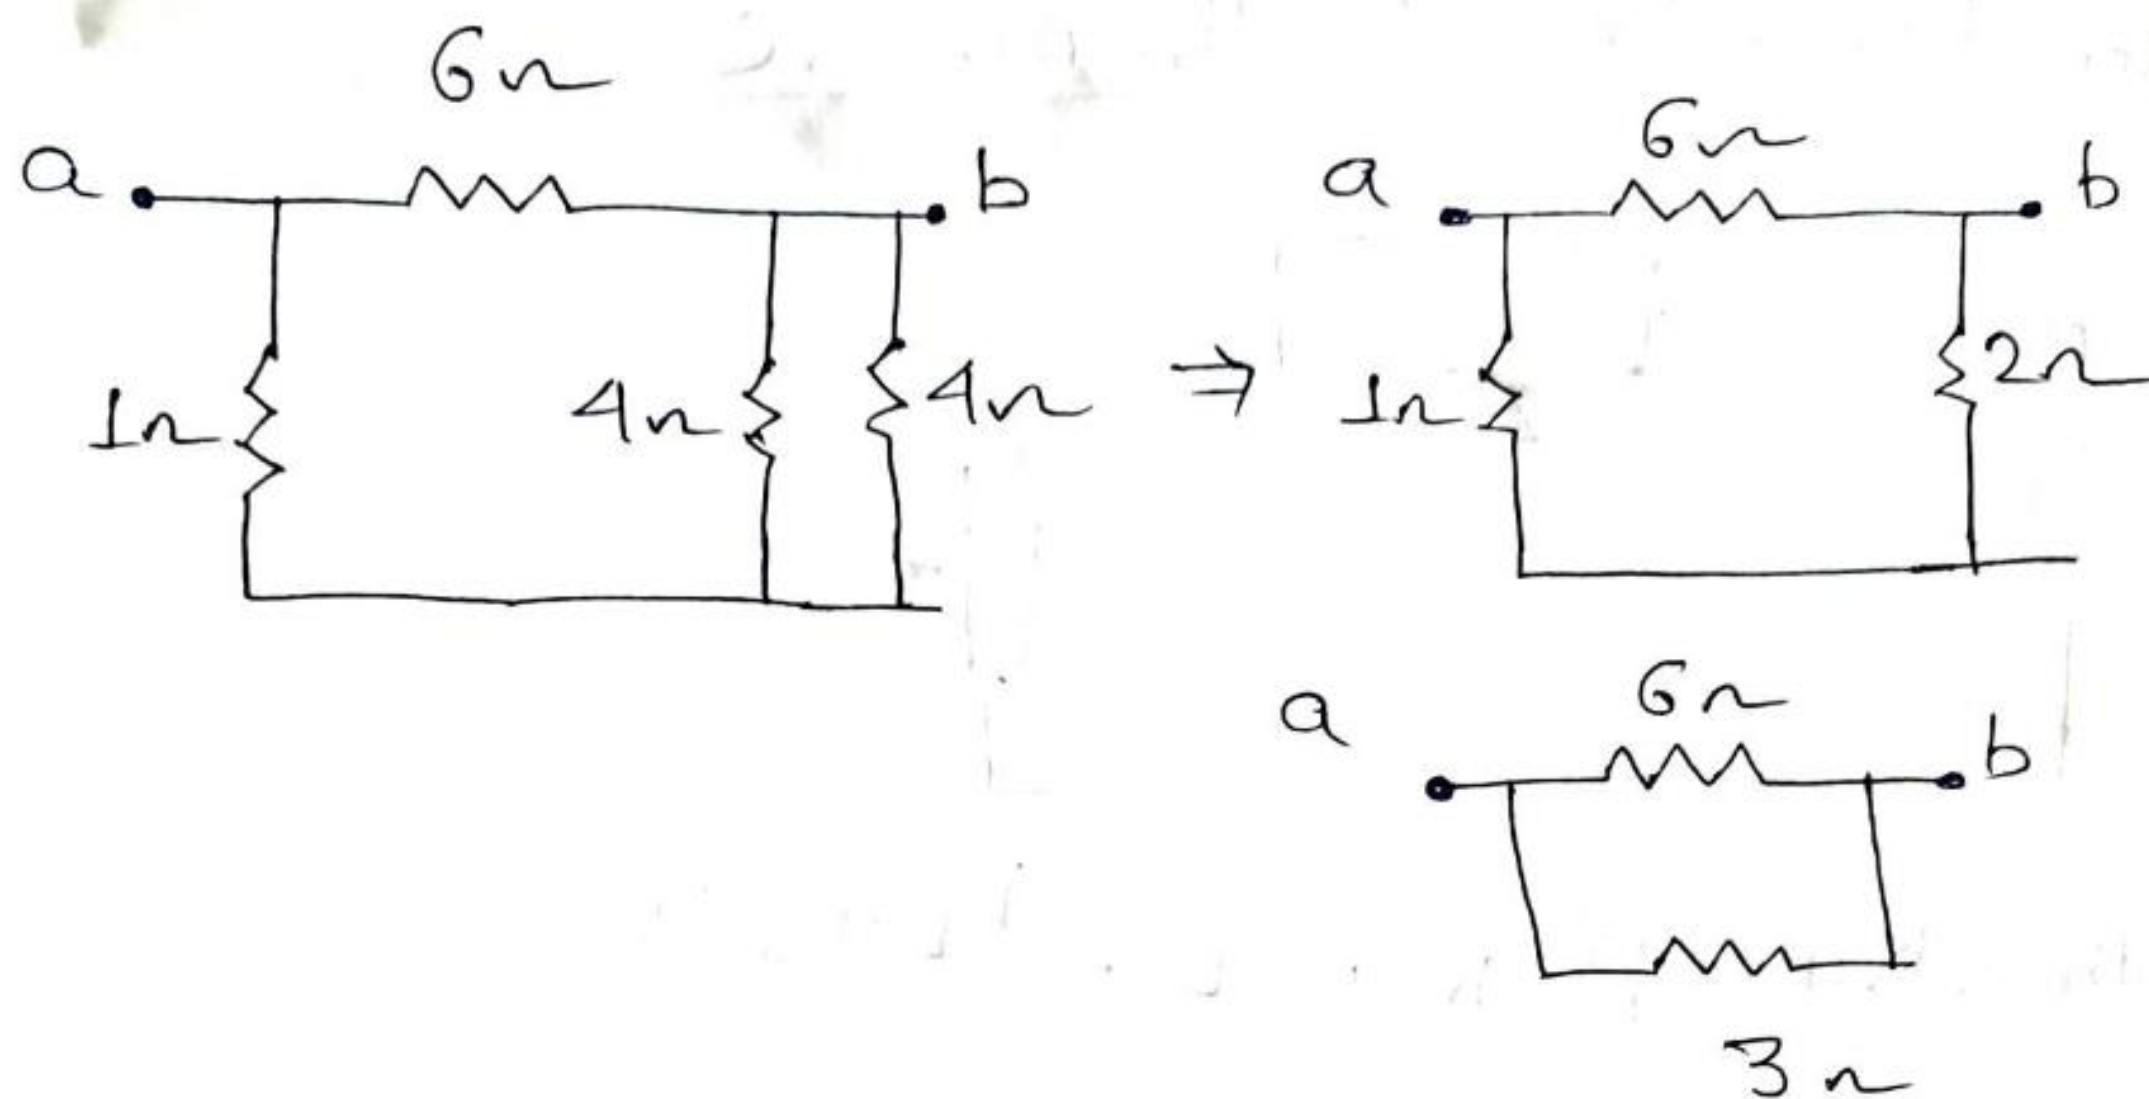 6Ω
a b
1Ω 4Ω 4Ω
⇒
6Ω
a b
1Ω 2Ω
6Ω
a b
3Ω